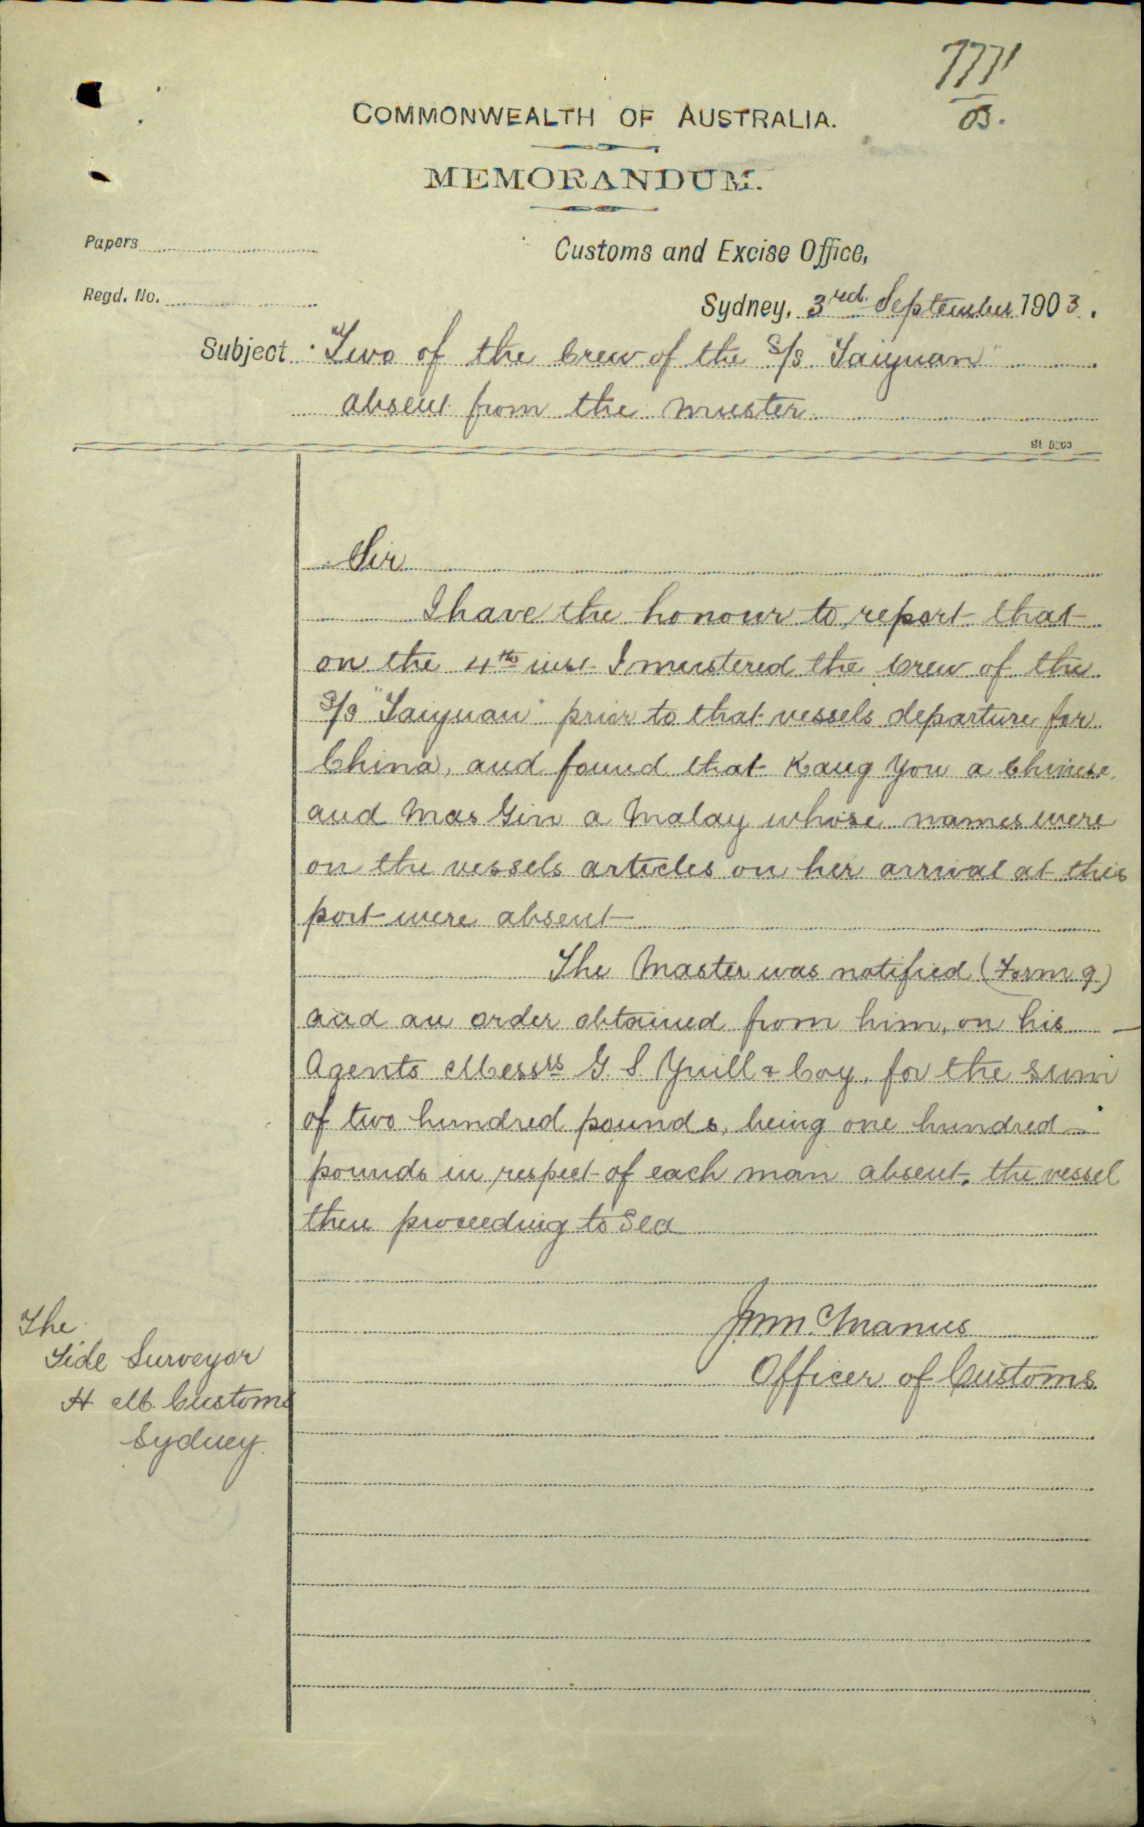 7771
03.
COMMONWEALTH OF AUSTRALIA.
MEMORANDUM.
Papers
Customs and Excise Office,
Regd. No.
Sydney, 3rd. September 1903.
Subject. "Two of the Crew of the S/S "Taiyuan"
absent from the muster.
Sir
I have the honour to report that
on the 4th inst I mustered the crew of the
S/S "Taiyuan" prior to that vessels departure for
China, and found that Kang You a Chinese
and Mas Gin a Malay whose names were
on the vessels articles on her arrival at this
port were absent
The Master was notified (Form 9)
and an order obtained from him, on his
Agents Messrs G. S. Yuill & Coy. for the sum
of two hundred pounds, being one hundred
pounds in respect of each man absent. the vessel
then proceeding to Sea
McManus
Officer of Customs
The
Tide Surveyor
H M Customs
Sydney.